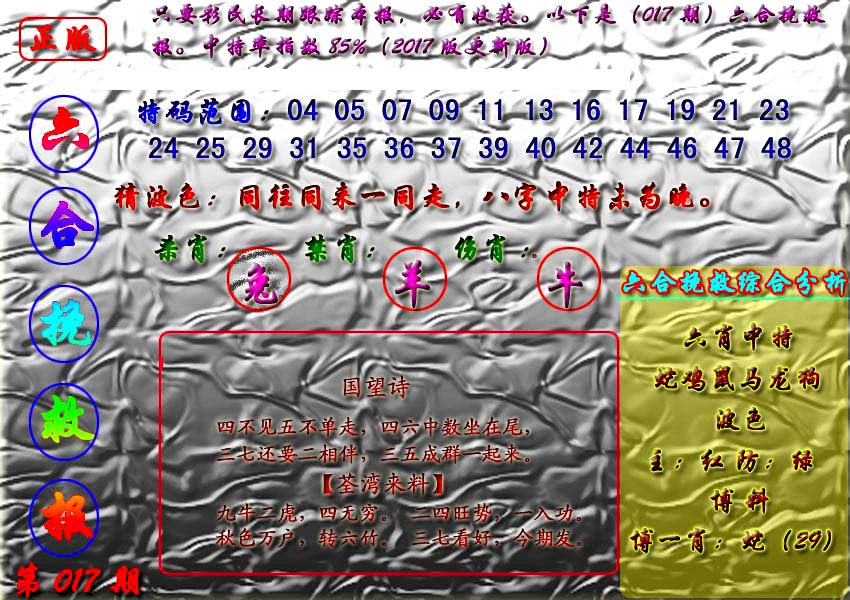 正版
只要彩民长期跟踪本报，必有收获。以下是（017期）六合挽救
报。中特率指数85%（2017版更新版）
六
合
挽
救
报
第 017 期
特码范围：04 05 07 09 11 13 16 17 19 21 23
24 25 29 31 35 36 37 39 40 42 44 46 47 48
猜波色：同往同来一同走，八字中特未为晚。
杀肖：兔 禁肖：羊 伤肖：牛。
国望诗
四不见五不单走，四六中数坐在尾，
三七还要二相伴，三五成群一起来。
【荃湾来料】
九牛二虎，四无穷。 二四旺势，一入功。
秋色万户，转六竹。 三七看好，今期发。
六合挽救综合分析
六肖中特
蛇鸡鼠马龙狗
波色
主：红防：绿
博料
博一肖：蛇（29）